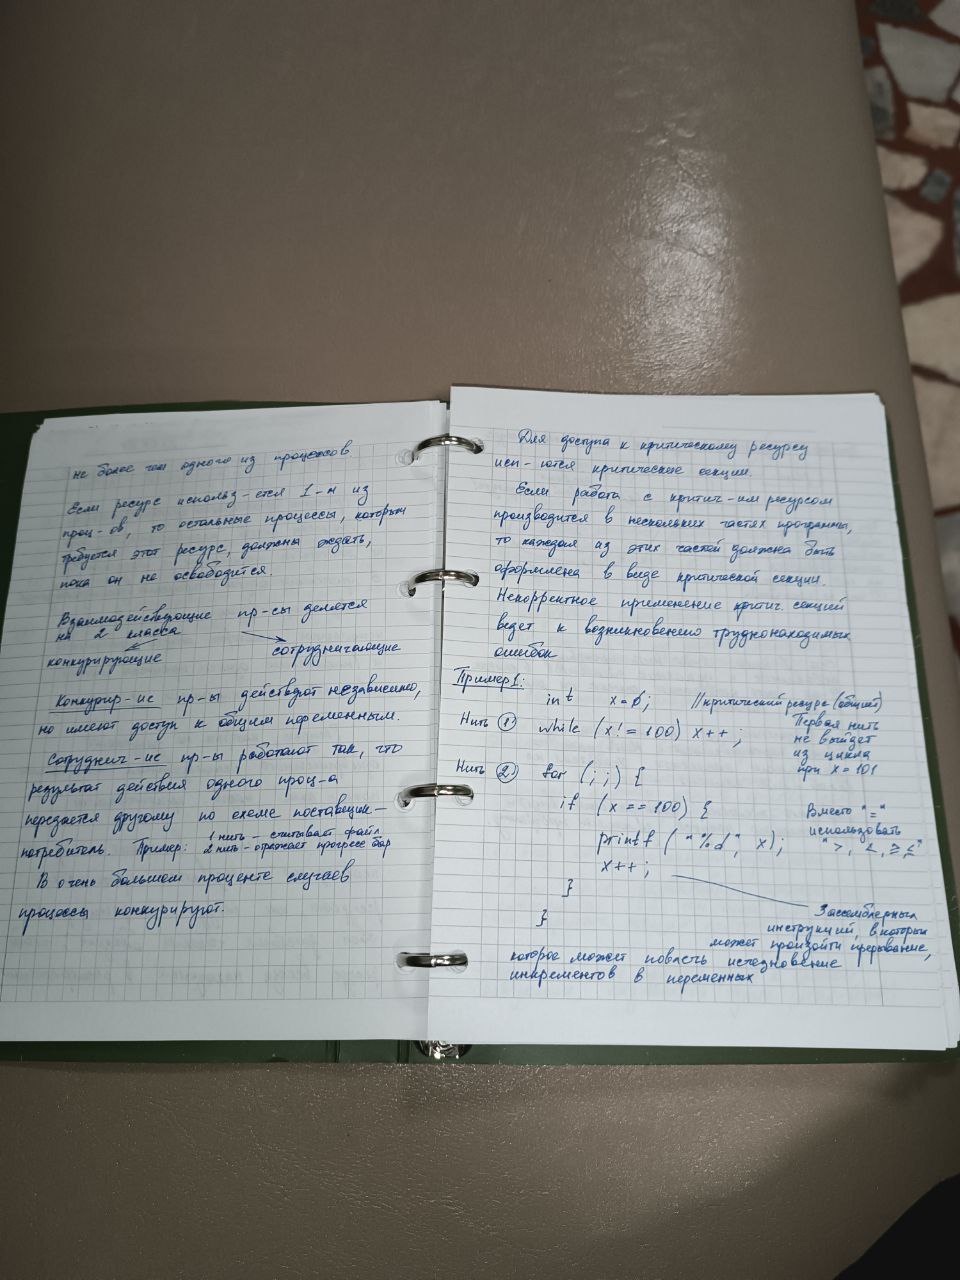 не более чем одного из процессов.
Если ресурс использ-ется 1-м из
проц-ов, то остальные процессы, которым
требуется этот ресурс, должны ждать,
пока он не освободится.
Взаимодействующие пр-сы делятся
на 2 класса
конкурирующие
сотрудничающие
Конкурир-ие пр-ы действуют независимо,
но имеют доступ к общим переменным.
Сотруднич-ие пр-ы работают так, что
результат действия одного проц-а
передается другому по схеме поставщик-
потребитель. Пример: 1 нить - считывает файл
2 нить - отражает прогресс бар
В очень большом проценте случаев
процессы конкурируют.
Для доступа к критическому ресурсу
исп-ются критические секции.
Если работа с критич-им ресурсом
производится в нескольких частях программы,
то каждая из этих частей должна быть
оформлена в виде критической секции.
Некорректное применение критич. секций
ведет к возникновению труднонаходимых
ошибок
Пример 1:
int x=0; //критический ресурс (общий)
Нить 1) while (x != 100) x++;
Первая нить
не выйдет
из цикла
при x = 101
Нить 2) for (;;) {
if (x == 100) {
printf ("%d", x);
x++;
}
}
Вместо "="
использовать
">, <, ≥, ≤"
3 ассемблерных
инструкций, в которых
может произойти прерывание,
которое может повлечь исчезновение
инкрементов в переменных